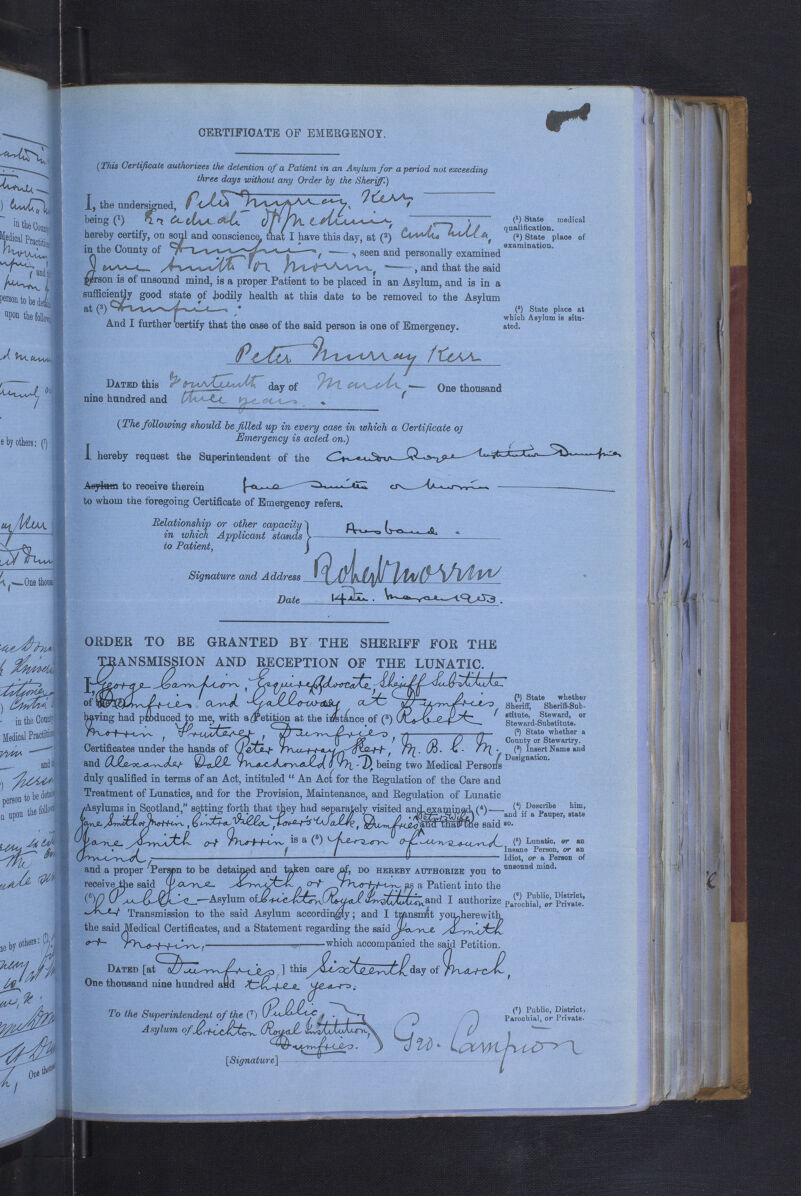 CERTIFICATE OF EMERGENCY.
(This Certificate authorizes the detention of a Patient in an Asylum for a period not exceeding
three days without any Order by the Sheriff.)
I, the undersigned, Peter Murray Kerr,
being (1) Graduate of Medicine,
hereby certify, on soul and conscience, that I have this day, at (2) Cintra Villa,
in the County of Dumfries, —, seen and personally examined
Jane Smith or Morrin, —, and that the said
person is of unsound mind, is a proper Patient to be placed in an Asylum, and is in a
sufficiently good state of bodily health at this date to be removed to the Asylum
at (3) Dumfries.
And I further certify that the case of the said person is one of Emergency.
(1) State medical
qualification.
(2) State place of
examination.
(3) State place at
which Asylum is situ-
ated.
Peter Murray Kerr
DATED this Fourteenth day of March, — One thousand
nine hundred and three years.
(The following should be filled up in every case in which a Certificate of
Emergency is acted on.)
I hereby request the Superintendent of the Crichton Royal Institution Dumfries
Asylum to receive therein Jane Smith or Morrin
to whom the foregoing Certificate of Emergency refers.
Relationship or other capacity
in which Applicant stands
to Patient,
Husband.
Signature and Address Robert Morrin
Date 14th. March 1903.
ORDER TO BE GRANTED BY THE SHERIFF FOR THE
TRANSMISSION AND RECEPTION OF THE LUNATIC.
I, George Campion, Esquire, Advocate, Sheriff Substitute
of Dumfries and Galloway at Dumfries,
having had produced to me, with a Petition at the instance of (3) Robert
Morrin, Fruiterer, Dumfries,
Certificates under the hands of Peter Murray Kerr, M. B. C. M.
and Alexander Dall Macdonald M. D. being two Medical Persons
duly qualified in terms of an Act, intituled "An Act for the Regulation of the Care and
Treatment of Lunatics, and for the Provision, Maintenance, and Regulation of Lunatic
Asylums in Scotland," setting forth that they had separately visited and examined (4)—
Jane Smith or Morrin, Cintra Villa, Lover's Walk, Dumfries and that the said
Jane Smith or Morrin, is a (5) person of unsound
mind,
and a proper Person to be detained and taken care of, DO HEREBY AUTHORIZE you to
receive the said Jane Smith or Morrin as a Patient into the
(6) Public — Asylum of Crichton Royal Institution and I authorize
her Transmission to the said Asylum accordingly; and I transmit you herewith
the said Medical Certificates, and a Statement regarding the said Jane Smith
or Morrin, — which accompanied the said Petition.
DATED [at Dumfries,] this Sixteenth day of March,
One thousand nine hundred and three years.
To the Superintendent of the (7) Public
Asylum of Crichton Royal Institution,
Dumfries.
[Signature] Geo. Campion
(1) State whether
Sheriff, Sheriff-Sub-
stitute, Steward, or
Steward-Substitute.
(2) State whether a
County or Stewartry.
(3) Insert Name and
Designation.
(4) Describe him,
and if a Pauper, state
so.
(5) Lunatic, or an
Insane Person, or an
Idiot, or a Person of
unsound mind.
(6) Public, District,
Parochial, or Private.
(7) Public, District,
Parochial, or Private.